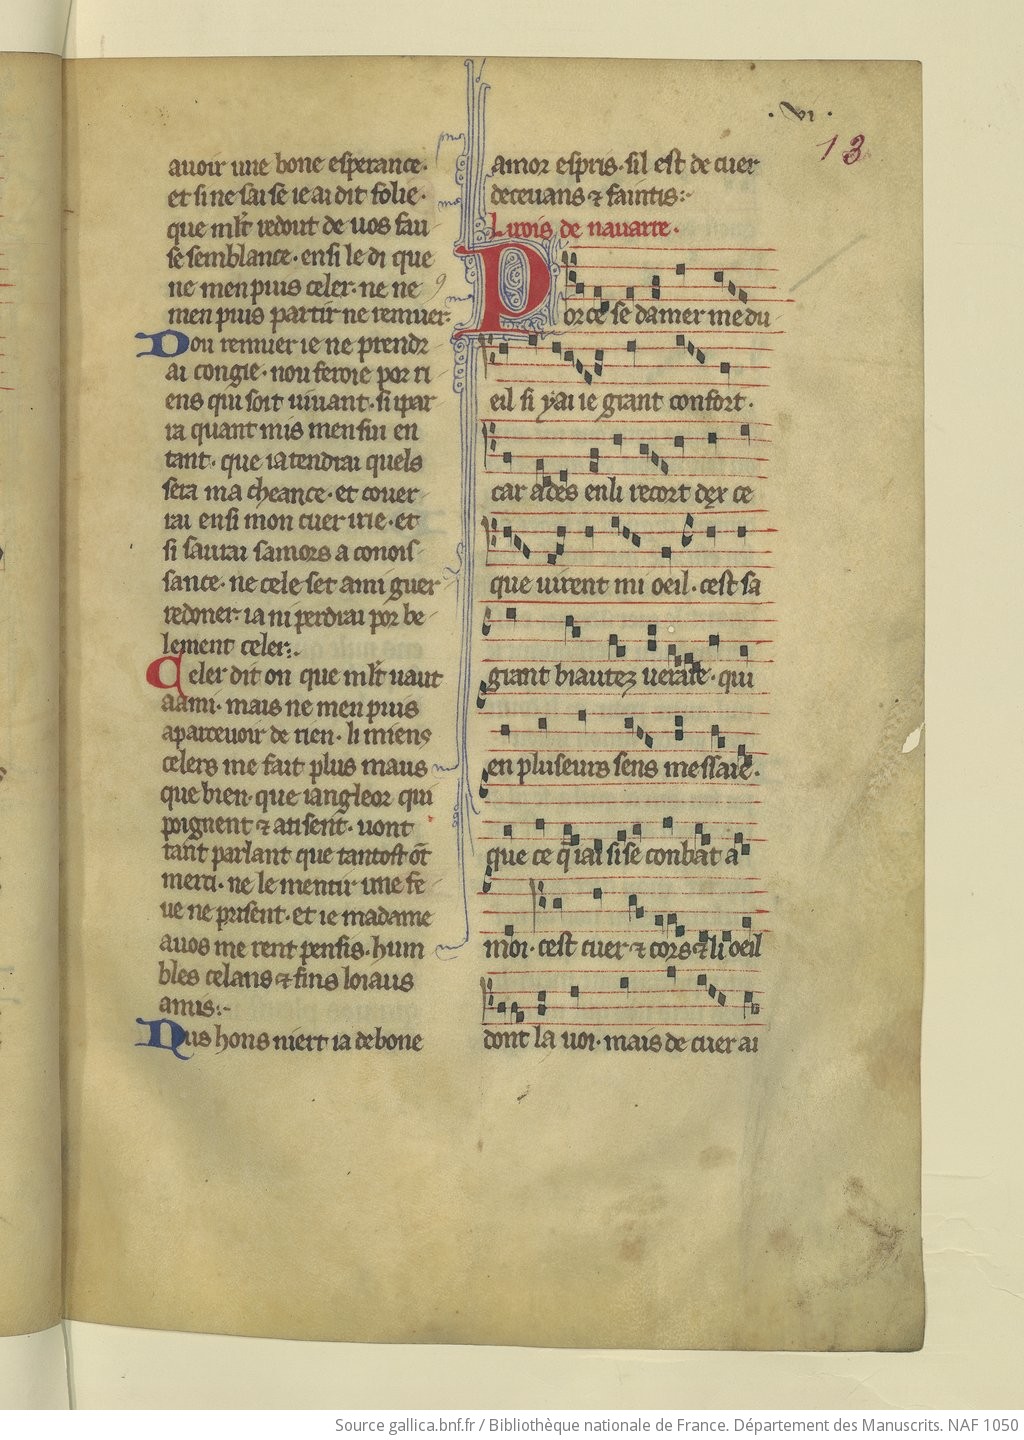 · vi ·
13
avoir une bone esperance·
et si ne sai se ie ai dit folie·
que mlt redout de vos fau
se semblance· ensi le di que
ne men puis celer· ne ne
men puis partir ne remuer·
Dou remuer ie ne prendr
ai congie· nou feroie por ri
ens qui soit vivant· si ipar
ra quant mis men sui en
tant· que ia tendrai quels
sera ma cheance· et cover
rai ensi mon cuer irie· et
si savrai samors a conois
sance· ne cele set ami guer
redoner· ia ni perdrai por be
lement celer:·
Celer dit on que mlt vaut
a ami· mais ne men puis
apercevoir de rien· li miens
celers me fait plus maus
que bien· que iangleor qui
poignent ⁊ atisent· vont
tant parlant que tantost ōt
merci· ne le mentir une fe
ve ne prisent· et ie ma dame
a vos me rent pensis· hum
bles celans ⁊ fins loiaus
amis:·
Nus hons niert ia de bone
amor espris· sil est de cuer
decevans ⁊ faintis:·
Li rois de navarre·
Por ce se damer me du
eil si y ai ie grant confort·
car ades en li recort dex ce
que virent mi oeil· cest sa
grant biautez veraie· qui
en pluseurs sens messaie·
que ce q̄ iai si se conbat a
moi· cest cuer ⁊ cors ⁊ li oeil
dont la voi· mais de cuer ai
Source gallica.bnf.fr / Bibliothèque nationale de France. Département des Manuscrits. NAF 1050